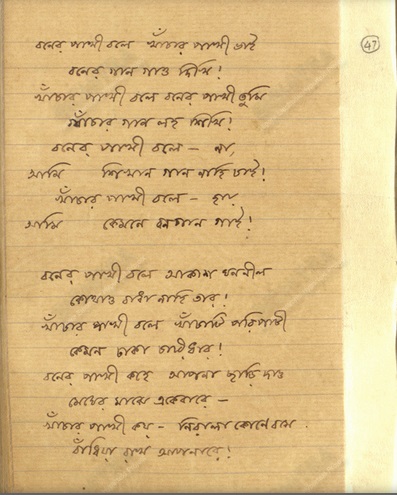 বনের পাখী বলে খাঁচার পাখী ভাই
বনের গান গাও দিখি!
খাঁচার পাখী বলে বনের পাখী তুমি
খাঁচার গান লহ শিখি!
বনের পাখী বলে – না,
আমি শিখান গান নাহি চাই!
খাঁচার পাখী বলে – হায়,
আমি কেমনে বনগান গাই!
বনের পাখী বলে আকাশ ঘননীল
কোথাও বাধা নাহি তার!
খাঁচার পাখী বলে খাঁচাটি পরিপাটী
কেমন ঢাকা চারিধার!
বনের পাখী কহে আপনা ছাড়ি দাও
মেঘের মাঝে একেবারে –
খাঁচার পাখী কয় – নিরালা কোনে বসে
বাঁধিয়া রাখ আপনারে!
47